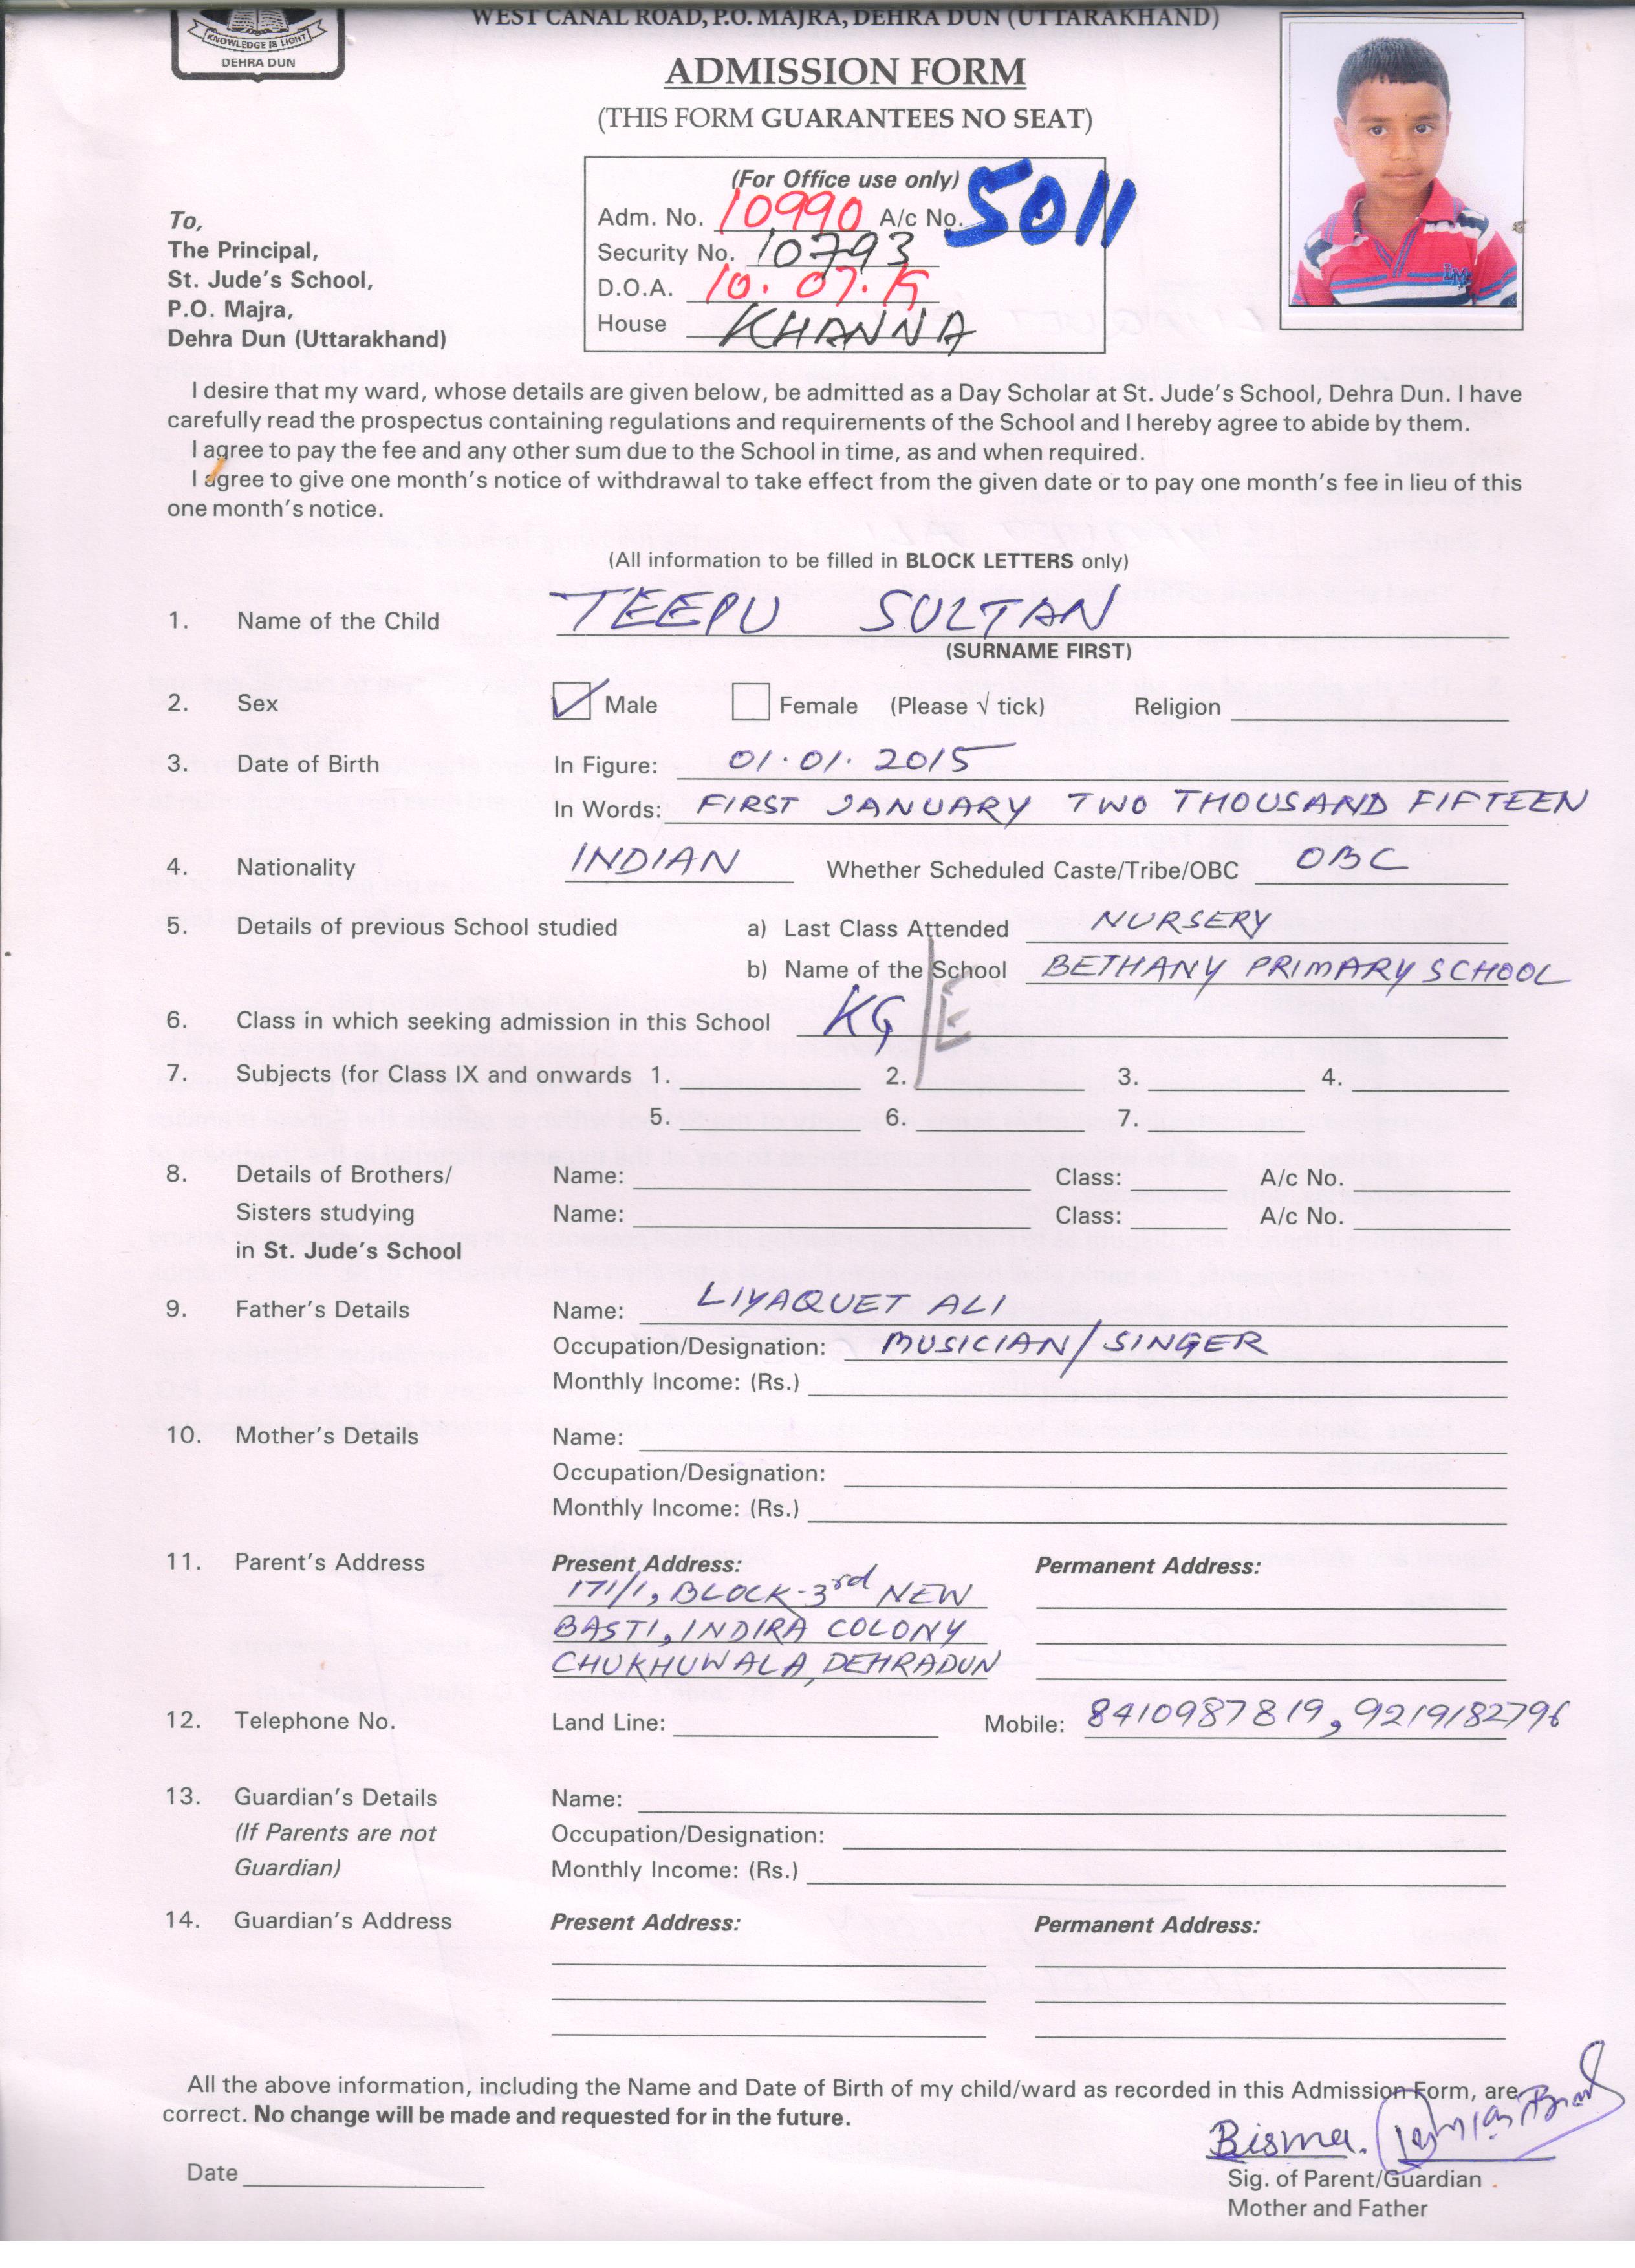 KNOWLEDGE IS LIGHT
DEHRA DUN
WEST CANAL ROAD, P.O. MAJRA, DEHRA DUN (UTTARAKHAND)
ADMISSION FORM
(THIS FORM GUARANTEES NO SEAT)
(For Office use only)
Adm. No. 10990 A/c No. 5011
Security No. 10793
D.O.A. 10.07.19
House KHANNA
To,
The Principal,
St. Jude's School,
P.O. Majra,
Dehra Dun (Uttarakhand)
I desire that my ward, whose details are given below, be admitted as a Day Scholar at St. Jude's School, Dehra Dun. I have
carefully read the prospectus containing regulations and requirements of the School and I hereby agree to abide by them.
I agree to pay the fee and any other sum due to the School in time, as and when required.
I agree to give one month's notice of withdrawal to take effect from the given date or to pay one month's fee in lieu of this
one month's notice.
(All information to be filled in BLOCK LETTERS only)
1. Name of the Child TEEPU SULTAN
(SURNAME FIRST)
2. Sex Male Female (Please √ tick) Religion
3. Date of Birth In Figure: 01.01.2015
In Words: FIRST JANUARY TWO THOUSAND FIFTEEN
4. Nationality INDIAN Whether Scheduled Caste/Tribe/OBC OBC
5. Details of previous School studied a) Last Class Attended NURSERY
b) Name of the School BETHANY PRIMARY SCHOOL
6. Class in which seeking admission in this School KG E
7. Subjects (for Class IX and onwards 1. 2. 3. 4.
5. 6. 7.
8. Details of Brothers/ Name: Class: A/c No.
Sisters studying Name: Class: A/c No.
in St. Jude's School
9. Father's Details Name: LIYAQUET ALI
Occupation/Designation: MUSICIAN/SINGER
Monthly Income: (Rs.)
10. Mother's Details Name:
Occupation/Designation:
Monthly Income: (Rs.)
11. Parent's Address Present Address: Permanent Address:
171/1, BLOCK-3rd NEW
BASTI, INDIRA COLONY
CHUKHUWALA, DEHRADUN
12. Telephone No. Land Line: Mobile: 8410987819, 9219182796
13. Guardian's Details Name:
(If Parents are not Occupation/Designation:
Guardian) Monthly Income: (Rs.)
14. Guardian's Address Present Address: Permanent Address:
All the above information, including the Name and Date of Birth of my child/ward as recorded in this Admission Form, are
correct. No change will be made and requested for in the future.
Bisma.
Date
Sig. of Parent/Guardian
Mother and Father